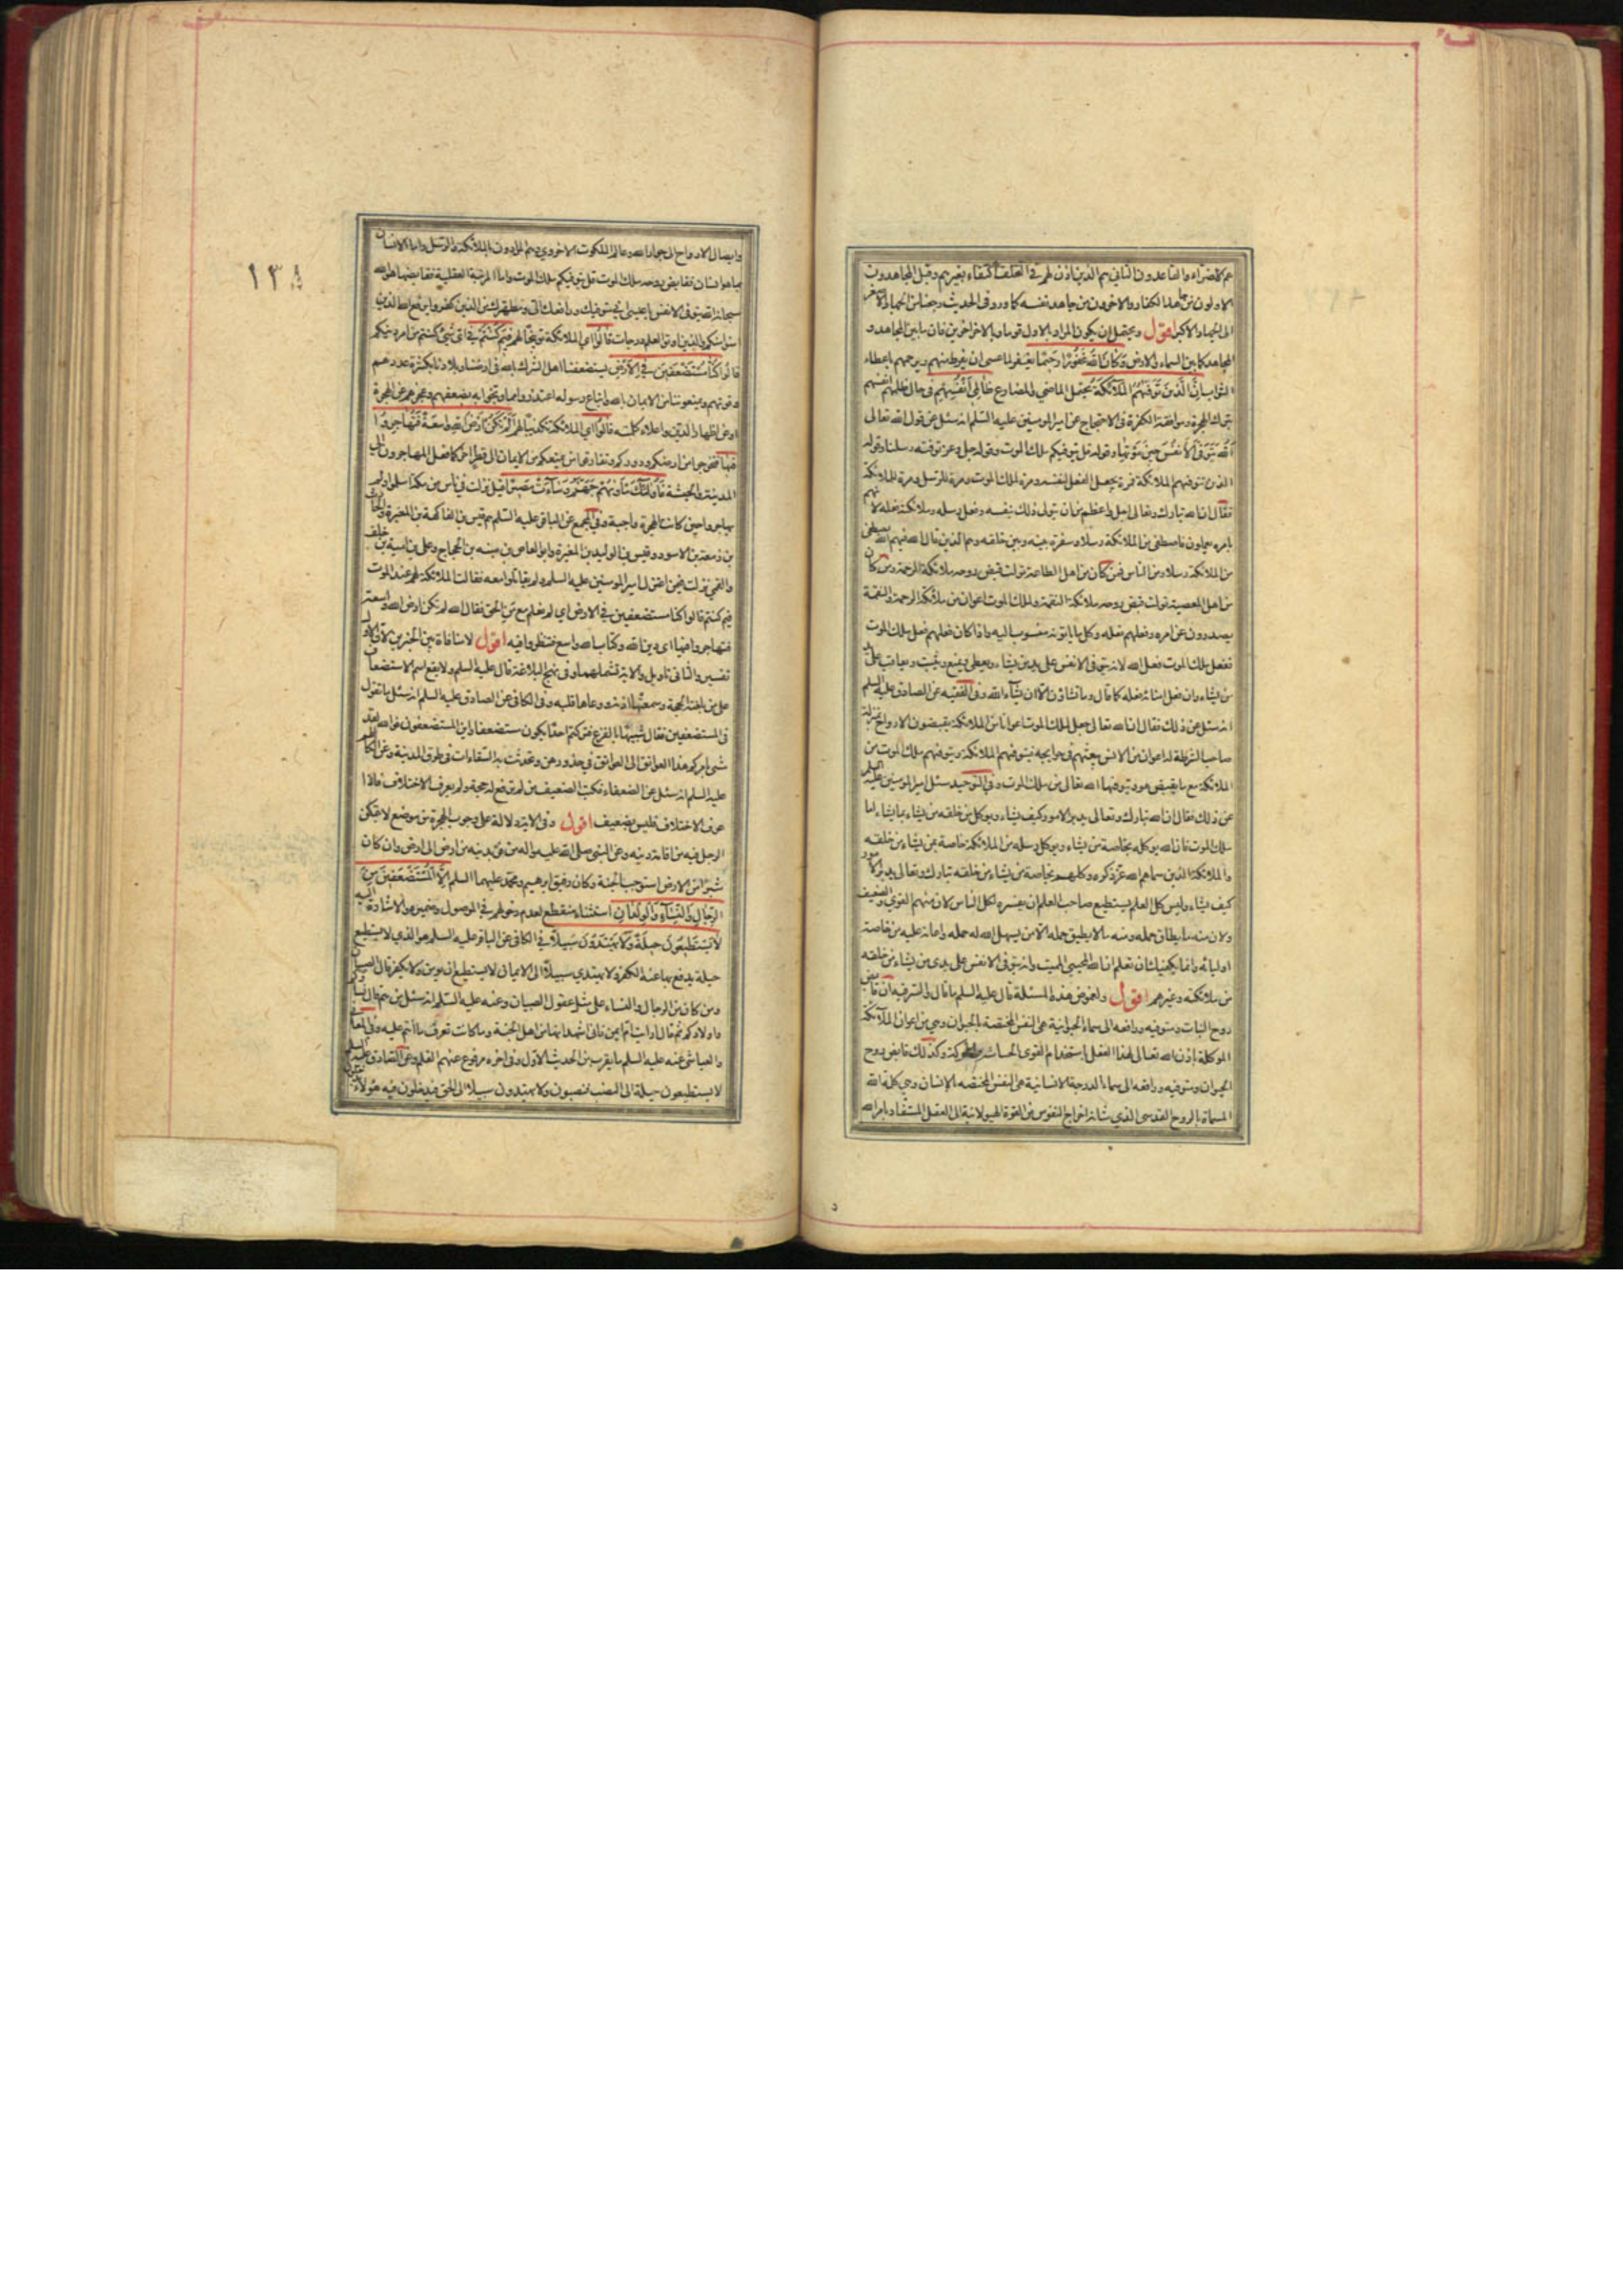 هم الاضراء والقاعدون الثاني هم الذين اذن لهم في التخلف اكتفاء بغيرهم وقيل المجاهدون
الاولون من جاهد الكفار والاخرون من جاهد نفسه كما ورد في الحديث رجعنا من الجهاد الاصغر
الى الجهاد الاكبر اقول ويحتمل ان يكون المراد بالاول قوما وبالاخر اخرين فان ما بين المجاهد و
المجاهد كما بين السماء والارض وَكَانَ اللهُ غَفُورًا رَحيمًا يغفر لما عسى ان يفرط منهم ويرحمهم باعطاء
الثواب اِنَّ الَّذينَ تَوَفّٰيهُمُ الْمَلٰٓئِكَةُ يحتمل الماضي والمضارع ظٰالِمي اَنْفُسِهِمْ في حال ظلمهم انفسهم
بترك الهجرة وموافقة الكفرة في الاحتجاج عن امير المومنين عليه السلم انه سئل عن قول الله تعالى
اَللهُ يَتَوَفَّى الْاَنْفُسَ حينَ مَوْتِهٰا وقوله قل يتوفيكم ملك الموت وقوله جل وعز توفته رسلنا وقوله
الذين تتوفيهم الملائكة فمرة يجعل الفعل لنفسه ومرة لملك الموت ومرة للرسل ومرة للملائكة
فقال ان الله تبارك وتعالى اجل واعظم من ان يتولى ذلك بنفسه وفعل رسله وملائكته فعله لانهم
بامره يعملون فاصطفى من الملائكة رسلا وسفرة بينه وبين خلقه وهم الذين قال الله فيهم الله يصطفى
من الملائكة رسلا ومن الناس فمن كان من اهل الطاعة تولت قبض روحه ملائكة الرحمة ومن كان
من اهل المعصية تولت قبض روحه ملائكة النقمة ولملك الموت اعوان من ملائكة الرحمة والنقمة
يصدرون عن امره وفعلهم فعله وكل ما ياتونه منسوب اليه واذا كان فعلهم فعل ملك الموت
ففعل ملك الموت فعل الله لانه يتوفى الانفس على يد من يشاء ويعطي ويمنع ويثيب ويعاقب على يد
من يشاء وان فعل امنائه فعله كما قال وما تشاؤن الا ان يشاء الله وفي الفقيه عن الصادق عليه السلم
انه سئل عن ذلك فقال ان الله تعالى جعل لملك الموت اعوانا من الملائكة يقبضون الارواح بمنزلة
صاحب الشرطة له اعوان من الانس يبعثهم في حوايجه فيتوفيهم الملائكة ويتوفيهم ملك الموت من
الملائكة مع ما يقبض هو ويتوفيها الله تعالى من ملك الموت وفي التوحيد سئل امير المومنين عليه السلم
عن ذلك فقال ان الله تبارك وتعالى يدبر الامور كيف يشاء ويوكل من خلقه من يشاء بما يشاء اما
ملك الموت فان الله يوكله بخاصة من يشاء ويوكل رسله من الملائكة خاصة بمن يشاء من خلقه
والملائكة الذين سماهم الله عز ذكره وكلهم بخاصة من يشاء من خلقه تبارك وتعالى يدبر الامور
كيف يشاء وليس كل العلم يستطيع صاحب العلم ان يفسره لكل الناس لان منهم القوي والضعيف
ولان منه ما يطاق حمله ومنه ما لا يطيق حمله الا من يسهل الله له حمله واعانه عليه من خاصة
اوليائه وانما يكفيك ان تعلم ان الله المحيي المميت وانه يتوفى الانفس على يدي من يشاء من خلقه
من ملائكته وغيرهم اقول ولغموض هذه المسئلة قال عليه السلم ما قال والسر فيه ان قابض
روح النبات ومتوفيه ورافعه الى سماء الحيوانية هي النفس المختصة بالحيوان وهي من اعوان الملائكة
الموكلة باذن الله تعالى لهذا الفعل باستخدام القوى الحساسة والمحركة وكذلك قابض روح
الحيوان ومتوفيه ورافعه الى سماء الدرجة الانسانية هي النفس المختصه بالانسان وهي كلمة الله
المسماة بالروح القدسي الذي شانه اخراج النفوس من القوة الهيولانية الى العقل المستفاد بامر الله
١٣٨
وايصال الارواح الى جوار الله وعالم الملكوت الاخروي وهم المرادون بالملائكة والرسل واما الانسان
بما هو انسان فقابض روحه ملك الموت قل يتوفيكم ملك الموت واما المرتبة العقلية فقابضها هو الله
سبحانه الله يتوفى الانفس يا عيسى اني متوفيك ورافعك الي ومطهرك من الذين كفروا يرفع الله الذين
امنوا منكم والذين اوتوا العلم درجات قٰالُوا اي الملائكة توبيخا لهم فيمَ كُنْتُمْ في اي شيء كنتم من امر دينكم
قٰالُوا كُنّٰا مُسْتَضْعَفينَ فِي الْاَرْضِ يستضعفنا اهل الشرك بالله في ارضنا وبلادنا بكثرة عددهم
وقوتهم ويمنعوننا من الايمان بالله واتباع رسوله اعتذروا مما وبخوا به بضعفهم وعجزهم عن الهجرة
او عن اظهار الدين واعلاء كلمته قٰالُوا اي الملائكة تكذيبا لهم اَلَمْ تَكُنْ اَرْضُ اللهِ وٰاسِعَةً فَتُهٰاجِرُوا
فيهٰا فتخرجوا من ارضكم ودوركم وتفارقوا من يمنعكم من الايمان الى قطر اخر كما فعل المهاجرون الى
المدينة والحبشة فَاُولٰٓئِكَ مَأْوٰيهُمْ جَهَنَّمُ وَسٰآءَتْ مَصيرًا قيل نزلت في ناس من مكة اسلموا ولم
يهاجروا حين كانت الهجرة واجبة وفي المجمع عن الباقر عليه السلم هم قيس بن الفاكهة بن المغيرة والحارث
بن زمعة بن الاسود وقيس بن الوليد بن المغيرة وابو العاص بن منبه بن الحجاج وعلي بن امية بن خلف
والقمي نزلت فيمن اعتزل امير المومنين عليه السلم ولم يقاتلوا معه فقالت الملائكة لهم عند الموت
فيم كنتم قالوا كنا مستضعفين في الارض اي لم نعلم مع من الحق فقال الله الم تكن ارض الله واسعة
فتهاجروا فيها اي دين الله وكتاب الله واسع فتنظروا فيه اقول لا منافاة بين الخبرين لان الاول
تفسير والثاني تاويل والاية تشملهما وفي نهج البلاغة قال عليه السلم ولا يقع اسم الاستضعاف
على من بلغته الحجة وسمعتها اذنه ووعاها قلبه وفي الكافي عن الصادق عليه السلم انه سئل ما تقول
في المستضعفين فقال شبيها بالفزع فتركتم احدا يكون مستضعفا واين المستضعفون فوالله لقد
مشى بامركم هذا العواتق الى العواتق في خدورهن وتحدثت به السقاءات في طريق المدينة وعن الكاظم
عليه السلم انه سئل عن الضعفاء فكتب الضعيف من لم ترفع له حجة ولم يعرف الاختلاف فاذا
عرف الاختلاف فليس بضعيف اقول وفي الاية دلالة على وجوب الهجرة من موضع لا يتمكن
الرجل فيه من اقامة دينه وعن النبي صلى الله عليه واله من فر بدينه من ارض الى ارض وان كان
شبرا من الارض استوجب الجنة وكان رفيق ابرهيم ومحمد عليهما السلم اِلَّا الْمُسْتَضْعَفينَ مِنَ
الرِّجٰالِ وَالنِّسٰآءِ وَالْوِلْدٰانِ استثناء منقطع لعدم دخولهم في الموصول وضميره والاشارة اليه
لٰا يَسْتَطيعُونَ حيلَةً وَلٰا يَهْتَدُونَ سَبيلًا في الكافي عن الباقر عليه السلم هو الذي لا يستطيع
حيلة يدفع بها عنه الكفر ولا يهتدي سبيلا الى الايمان لا يستطيع ان يومن ولا يكفر قال والصبيان
ومن كان من الرجال والنساء على مثل عقول الصبيان وعنه عليه السلم انه سئل من هم قال نساؤكم
واولادكم ثم قال ارايت ام ايمن فاني اشهد انها من اهل الجنة وما كانت تعرف ما انتم عليه وفي المعاني
والعياشي عنه عليه السلم ما يقرب من الحديث الاول وفي اخره مرفوع عنهم القلم وعن الصادق عليه السلم
لا يستطيعون حيلة الى النصب فينصبون ولا يهتدون سبيلا الى الحق فيدخلون فيه هؤلاء